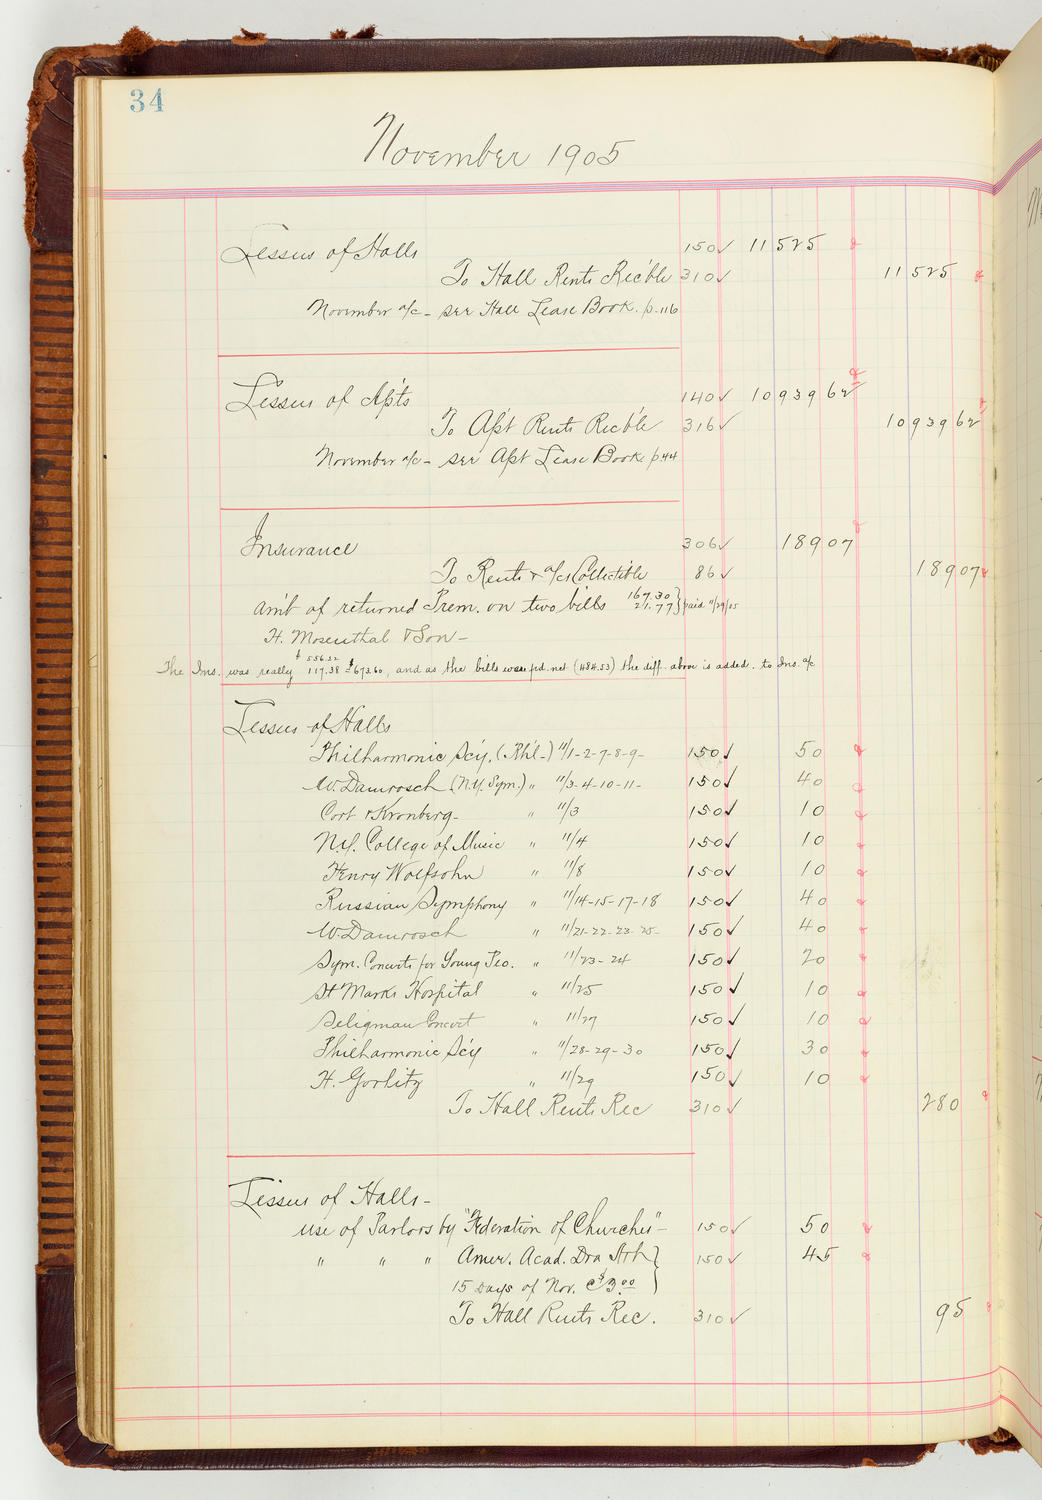 34
November 1905
Lessees of Halls 150✓ 11 525
To Hall Rents Rec'ble 310✓ 11 525
November a/c - see Hall Lease Book. p. 116
Lessees of Apts 140✓ 10939 62
To Apt Rents Rec'ble 316✓ 10939 62
November a/c - see Apt Lease Book p. 44
Insurance 306✓ 189 07
To Rents & a/cs Collectible 86✓ 189 07
am't of returned Prem. on two bills 167.30 21.77 } paid 11/29/05
H. Mosenthal & Son -
The Ins. was really $ 556.22 117.38 = $673.60, and as the bills were pd. net (484.53) the diff. above is added. to Ins. a/c
Lessees of Halls
Philharmonic Sc'y. (Ph'l-) 11/1-2-7-8-9- 150✓ 50
W. Damrosch (N.Y. Sym.) " 11/3-4-10-11- 150✓ 40
Cort & Kronberg- " 11/3 150✓ 10
N.Y. College of Music " 11/4 150✓ 10
Henry Wolfsohn " 11/8 150✓ 10
Russian Symphony " 11/14-15-17-18 150✓ 40
W. Damrosch " 11/21-22-23-25- 150✓ 40
Sym. Concerts for Young Peo. " 11/23-24 150✓ 20
St Marks Hospital " 11/25 150✓ 10
Seligman Concert " 11/27 150✓ 10
Philharmonic Sc'y " 11/28-29-30 150✓ 30
H. Gorlitz " 11/29 150✓ 10
To Hall Rents Rec 310✓ 280
Lessees of Halls-
use of Parlors by "Federation of Churches"- 150✓ 50
" " " Amer. Acad. Dra Arts } 150✓ 45
15 Days of Nov. @ $3.00 }
To Hall Rents Rec. 310✓ 95